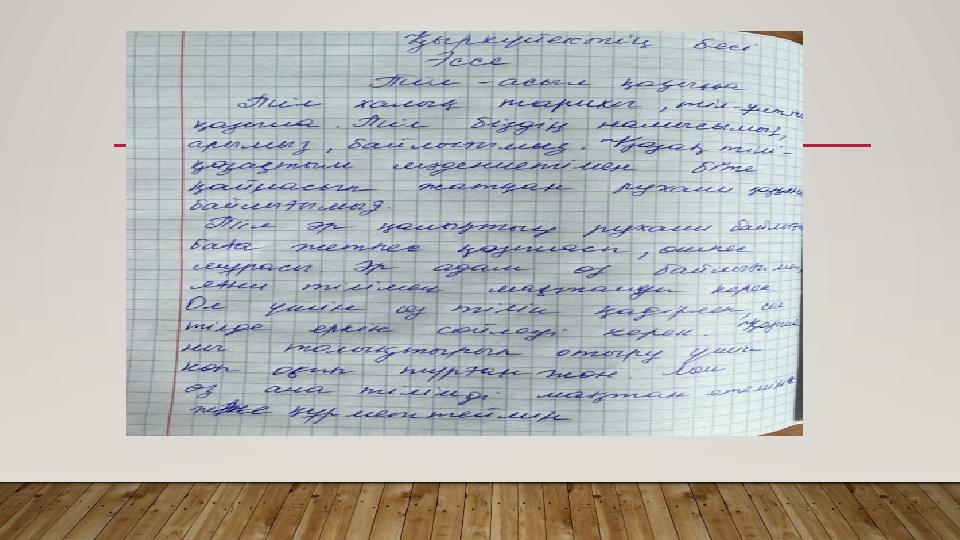 Қыркүйектің бесі
Эссе
Тіл - асыл қазына
Тіл халық тарихы, тіл - ұлттық
қазына. Тіл біздің намысымыз,
арымыз, байлығымыз. Қазақ тілі -
қазақтың мәдениетімен біте
қайнасып жатқан рухани қазына
байлығымыз.
Тіл әр қалықтың рухани байлығы
баға жетпес қазынасы, өшпес
мұрасы Әр адам өз байлығымен,
яғни тілімен мақтануы керек
Ол үшін өз тілін қадірлеп, сол
тілде еркін сөйлеуі керек.
толықтырып отыру үшін
көп оқып тұрған жөн Мен
өз ана тілімді мақтан етемін
және құрметтеймін